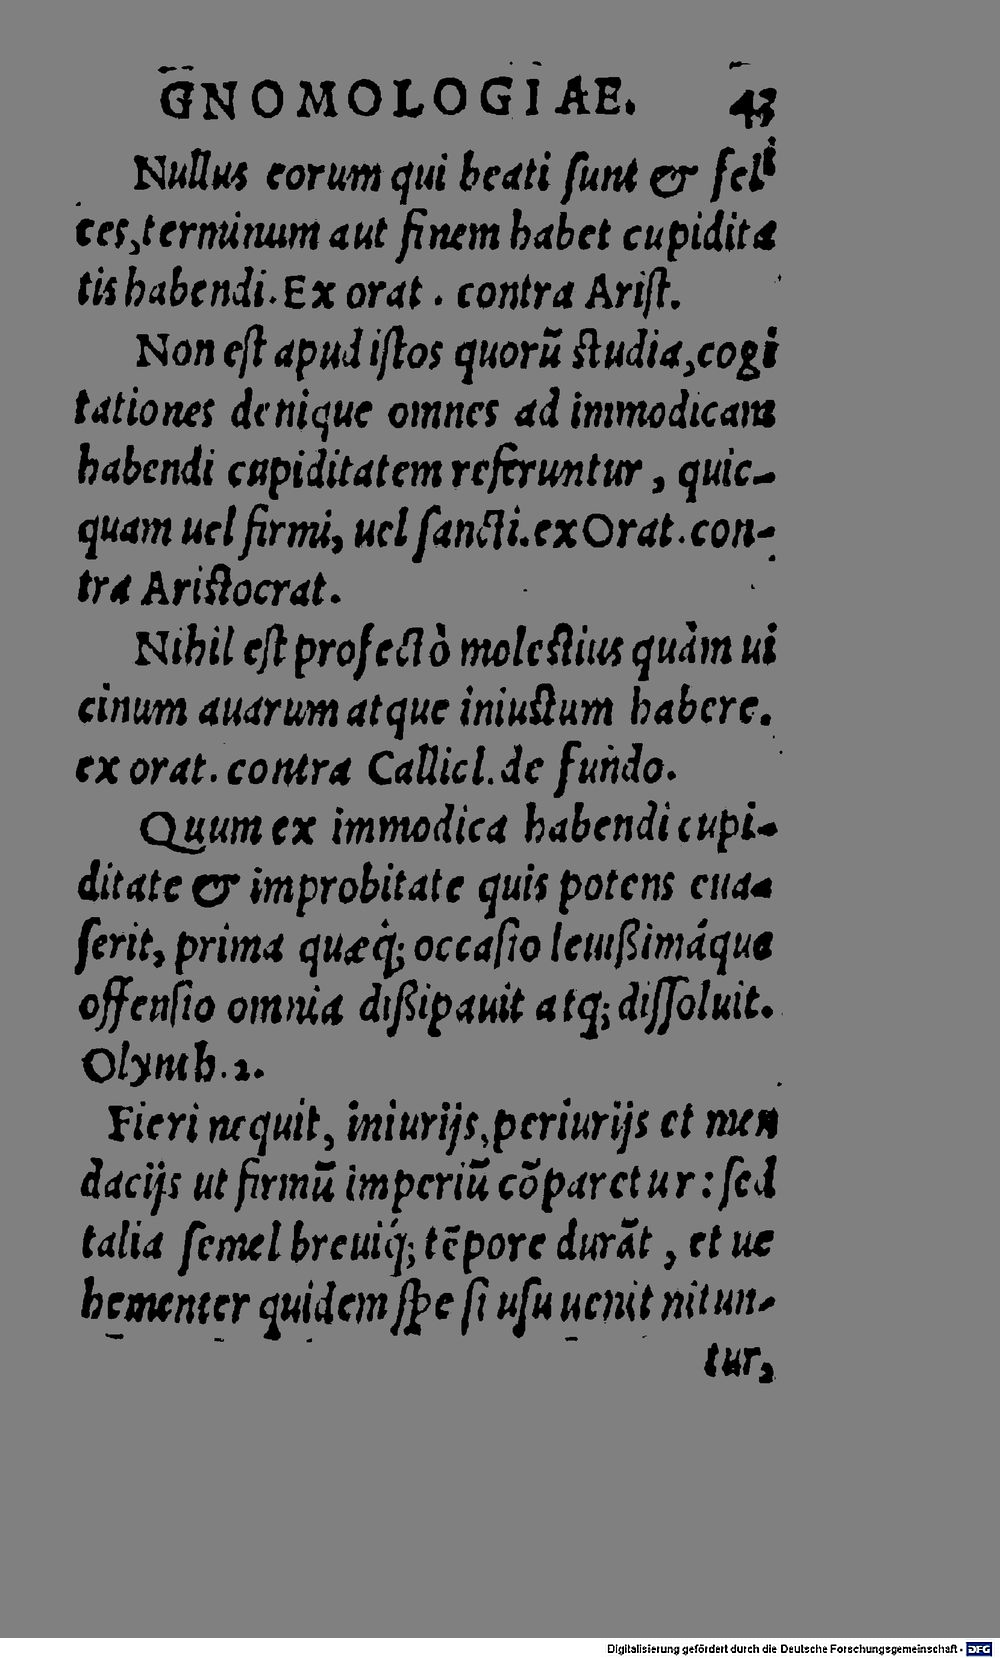 GNOMOLOGIAE. 43
Nullus eorum qui beati ſunt & feli
ces, terminum aut finem habet cupidita
tis habendi. Ex orat. contra Ariſt.
Non eſt apud iſtos quorũ ſtudia, cogi
tationes denique omnes ad immodicam
habendi cupiditatem referuntur, quic-
quam uel firmi, uel ſancti. ex Orat. con-
tra Ariſtocrat.
Nihil eſt profectò moleſtius quàm ui
cinum auarum atque iniuſtum habere.
ex orat. contra Callicl. de fundo.
Quum ex immodica habendi cupi-
ditate & improbitate quis potens eua-
ſerit, prima quæq́; occaſio leuißimáque
offenſio omnia dißipauit atq; diſſoluit.
Olynth. 2.
Fieri nequit, iniurijs, periurijs et men
dacijs ut firmũ imperiũ cõparetur: ſed
talia ſemel breuiq́; tẽpore durãt, et ue
hementer quidem ſpe ſi uſu uenit nitun-
tur,
Digitalisierung gefördert durch die Deutsche Forschungsgemeinschaft - DFG